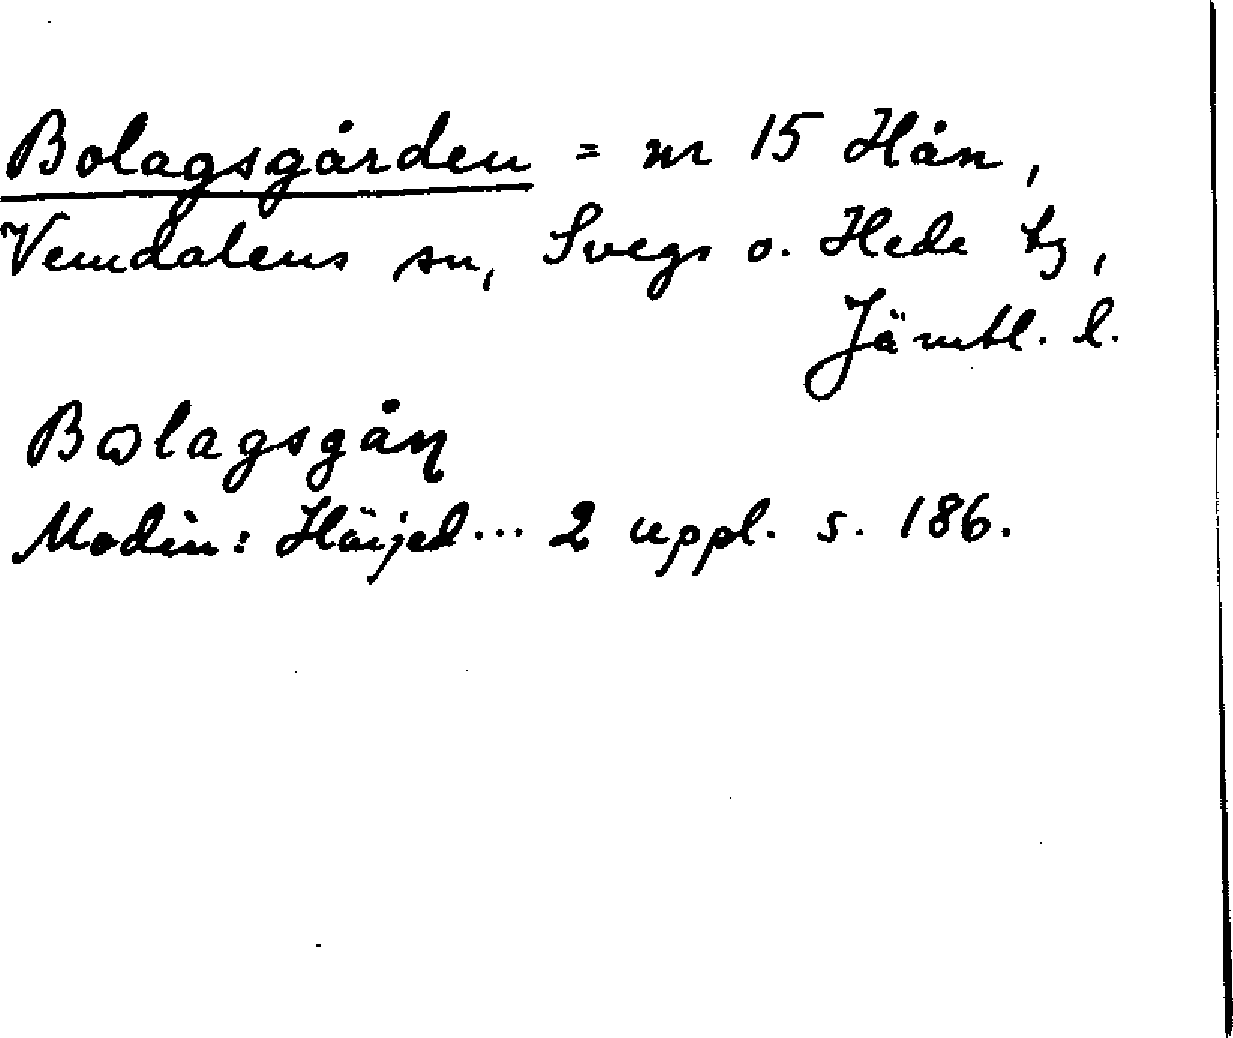 Bolagsgården = nr 15 Hån,
Vemdalens sn, Svegs o. Hede tg,
Jämtl. l.
Bωlagsgåɳ
Modin: Härjed... 2 uppl. s. 186.